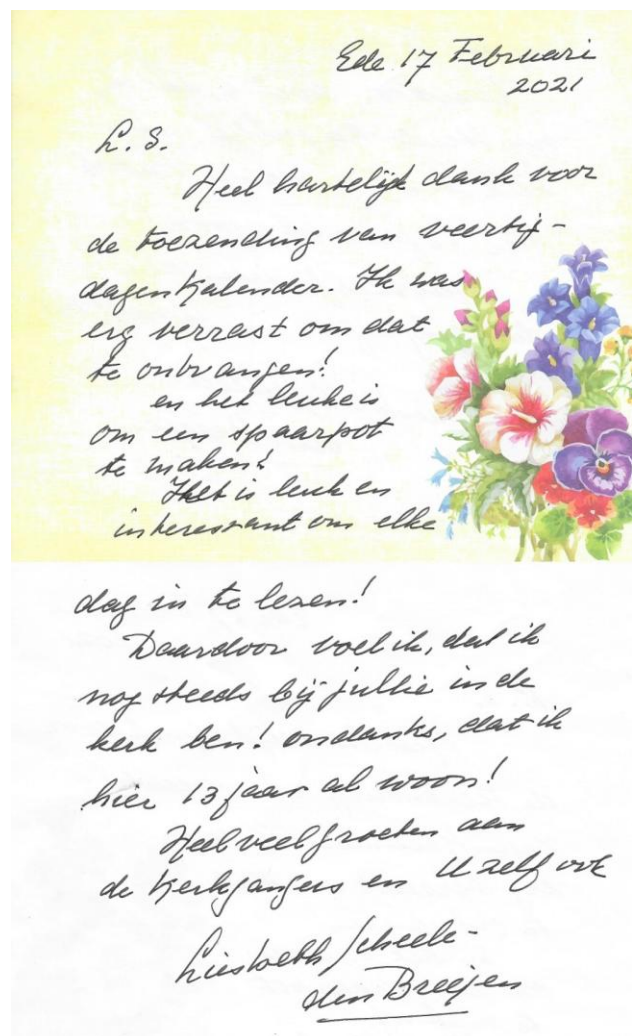 Ede 17 Februari
2021
L. S.
Heel hartelijk dank voor
de toezending van veertig-
dagenkalender. Ik was
erg verrast om dat
te ontvangen!
en het leuke is
om een spaarpot
te maken!
Het is leuk en
interessant om elke
dag in te lezen!
Daardoor voel ik, dat ik
nog steeds bij jullie in de
kerk ben! ondanks, dat ik
hier 13 jaar al woon!
Heel veel groeten aan
de Kerkgangers en U zelf ook
Liesbeth Scheele-
den Breejen